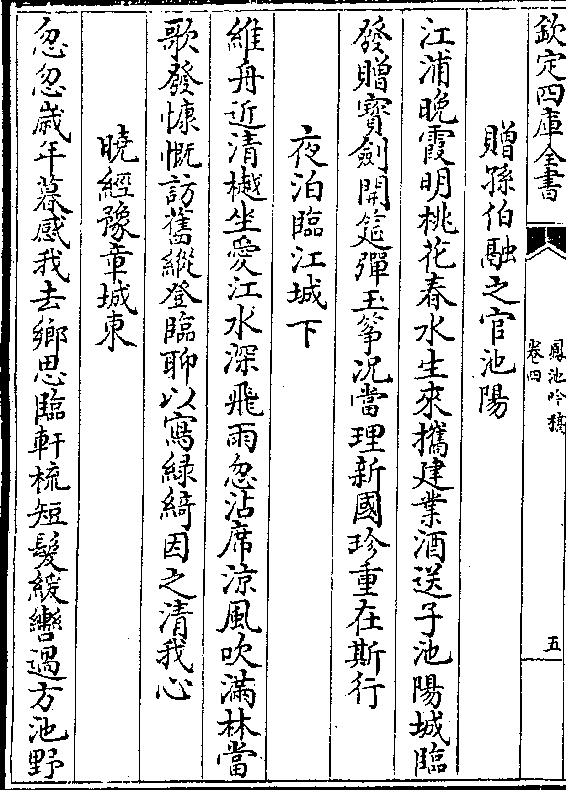 欽定四庫全書
鳳池吟稿
卷四
五
贈孫伯融之官池陽
江浦晚霞明桃花春水生來攜建業酒送子池陽城臨
發贈寳劍開筵彈玉筝況當理新國珍重在斯行
夜泊臨江城下
維舟近清樾坐愛江水深飛雨忽沾席涼風吹滿林當
歌發慷慨訪舊縱登臨聊以寫綠綺因之清我心
曉經豫章城東
忽忽嵗年暮感我去鄉思臨軒梳短髮緩轡過方池野